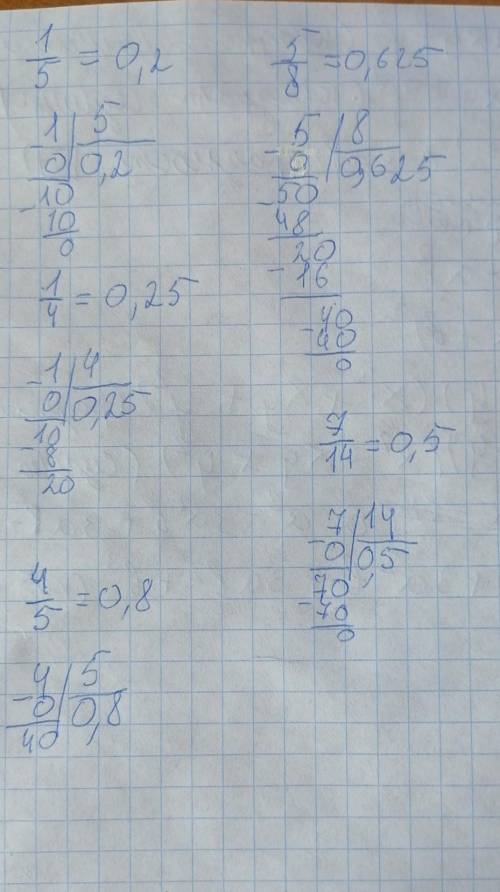 1/5 = 0,2
-1 | 5
0 | 0,2
-10
10
0
1/4 = 0,25
-1 | 4
0 | 0,25
10
-8
20
4/5 = 0,8
4 | 5
-0 | 0,8
40
5/8 = 0,625
-5 | 8
0 | 0,625
-50
48
20
-16
40
-40
0
7/14 = 0,5
-7 | 14
0 | 0,5
70
-70
0